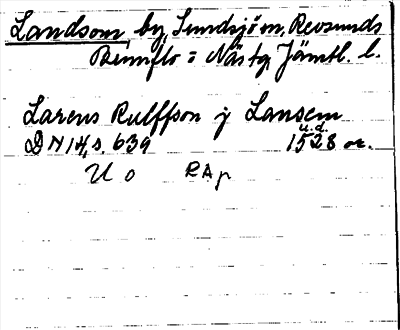 Landsom, by, Sundsjö sn, Revsunds
Brunflo o Näs tg Jämtl. l.
Larens Rulffson j Lansem
DN 14, s. 639 u.d. 1528 or.
U o RAp